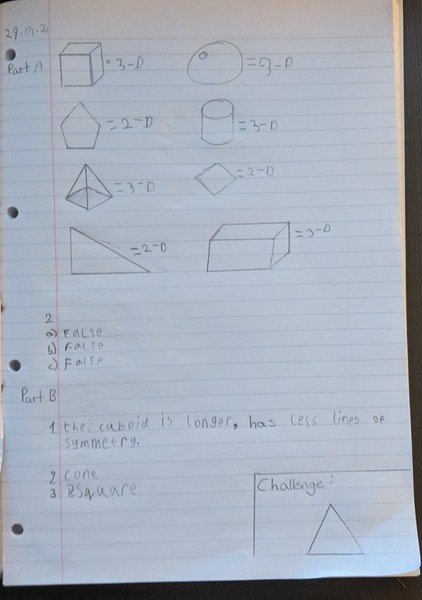 29.01.2
Part A
= 3-D
= 3-D
= 2-D
= 3-D
= 3-D
= 2-D
= 2-D
= 3-D
2
a) FALSE
b) FALSE
c) False
Part B
1. the cuboid is longer, has less lines of
symmetry.
2. cone
3. Square
Challenge: